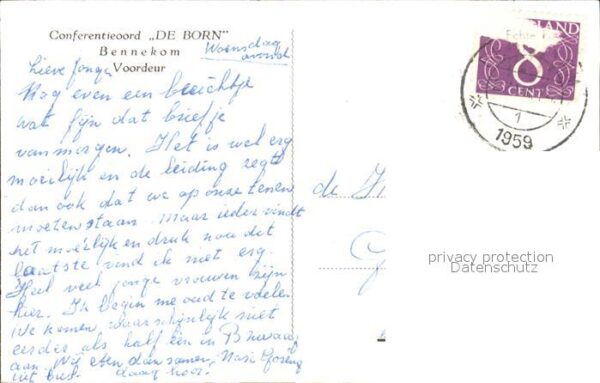 Conferentieoord „DE BORN"
Bennekom
Voordeur
Woensdag
avond
Lieve Jonga
Nog even een berichtje
wat fijn dat briefje
vanmorgen. Het is wel erg
moeilijk en de leiding zegt
dan ook dat we op onze tenen
moeten staan. Maar ieder vindt
het moeilijk en druk nou dit
laatste vind ik niet erg.
Heel veel jonge vrouwen zijn
hier. Ik begin me oud te voelen.
We komen waarschijnlijk niet
eerder als half één in
aan. Wij eten dan samen, Nasi Goreng
uit bus. daag hoor.
LAND
8
CENT
1
1959
de
privacy protection
Datenschutz